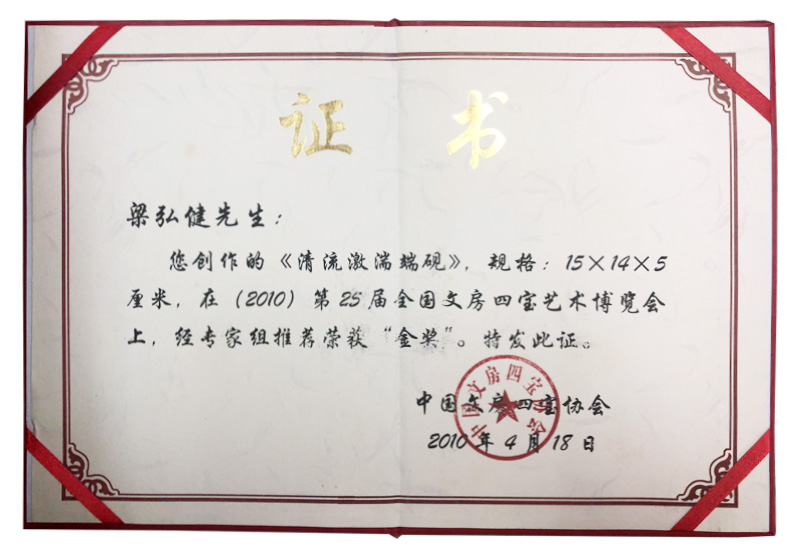 证书
梁弘健先生：
您创作的《清流激湍端砚》，规格：15×14×5
厘米，在（2010）第25届全国文房四宝艺术博览会
上，经专家组推荐荣获“金奖”。特发此证。
中国文房四宝协会
2010年4月18日
中国文房四宝协会